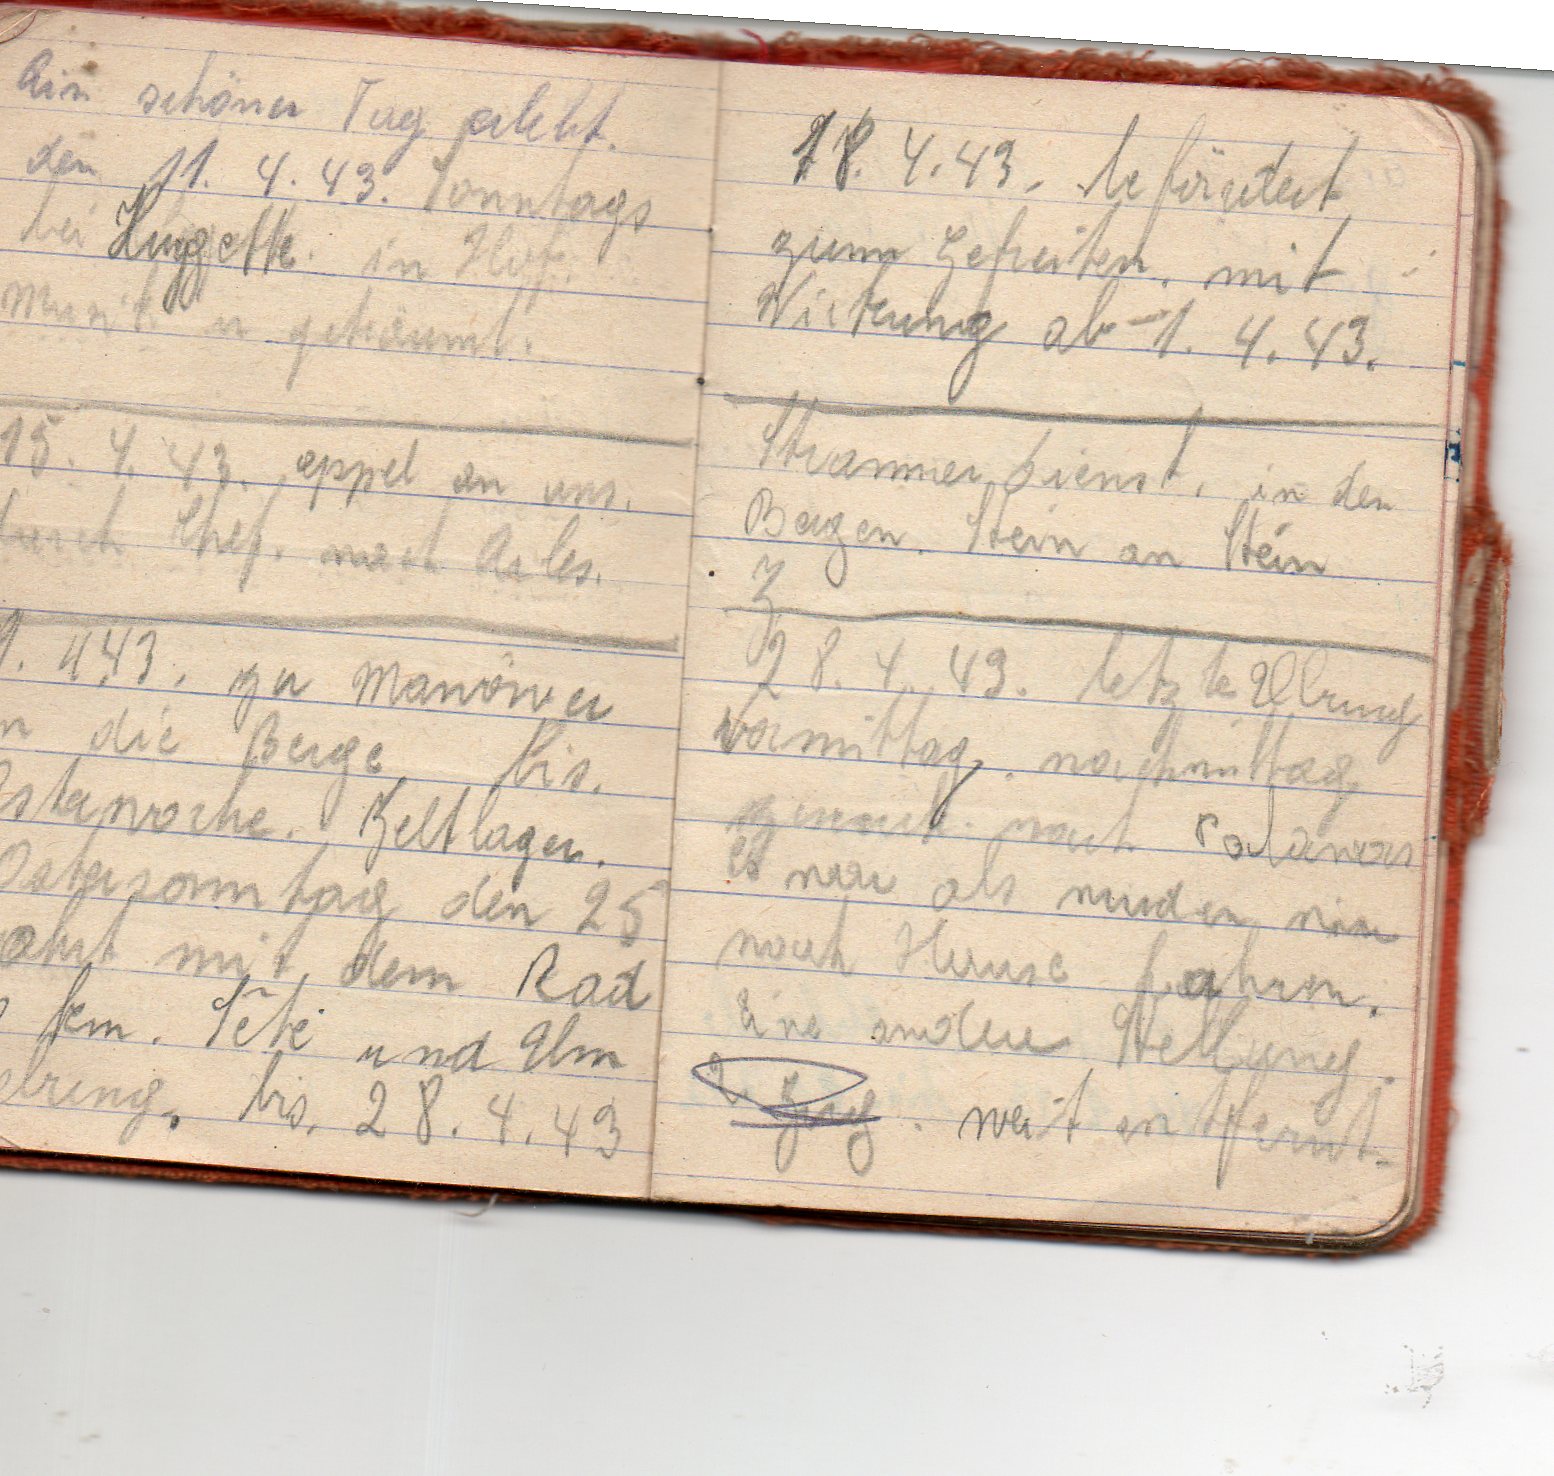 Ein schöner Tag erlebt.
den 11. 4. 43. Sonntags
bei Huggette. in Hof.
Musik u geträumt.
15. 4. 43. appel an uns.
durch Chef. nach Arles.
4.43. zu Manöver
in die Berge bis.
Osterwoche. Zeltlager.
Ostersonntag den 25
fahrt mit dem Rad
km. Séte und Um
gebung. bis, 28. 4. 43
18. 4. 43. befördert
zum Gefreiten. mit
Wirkung ab 1. 4. 43.
Strammer Dienst. in den
Bergen. Stein an Stein
Z
28. 4. 43. letzte Übung
vormittag. nachmittag
zurück. nach
Es war als wurden wir
nach Hause fahren.
Eine andere Stellung.
2. Zug. weit entfernt.